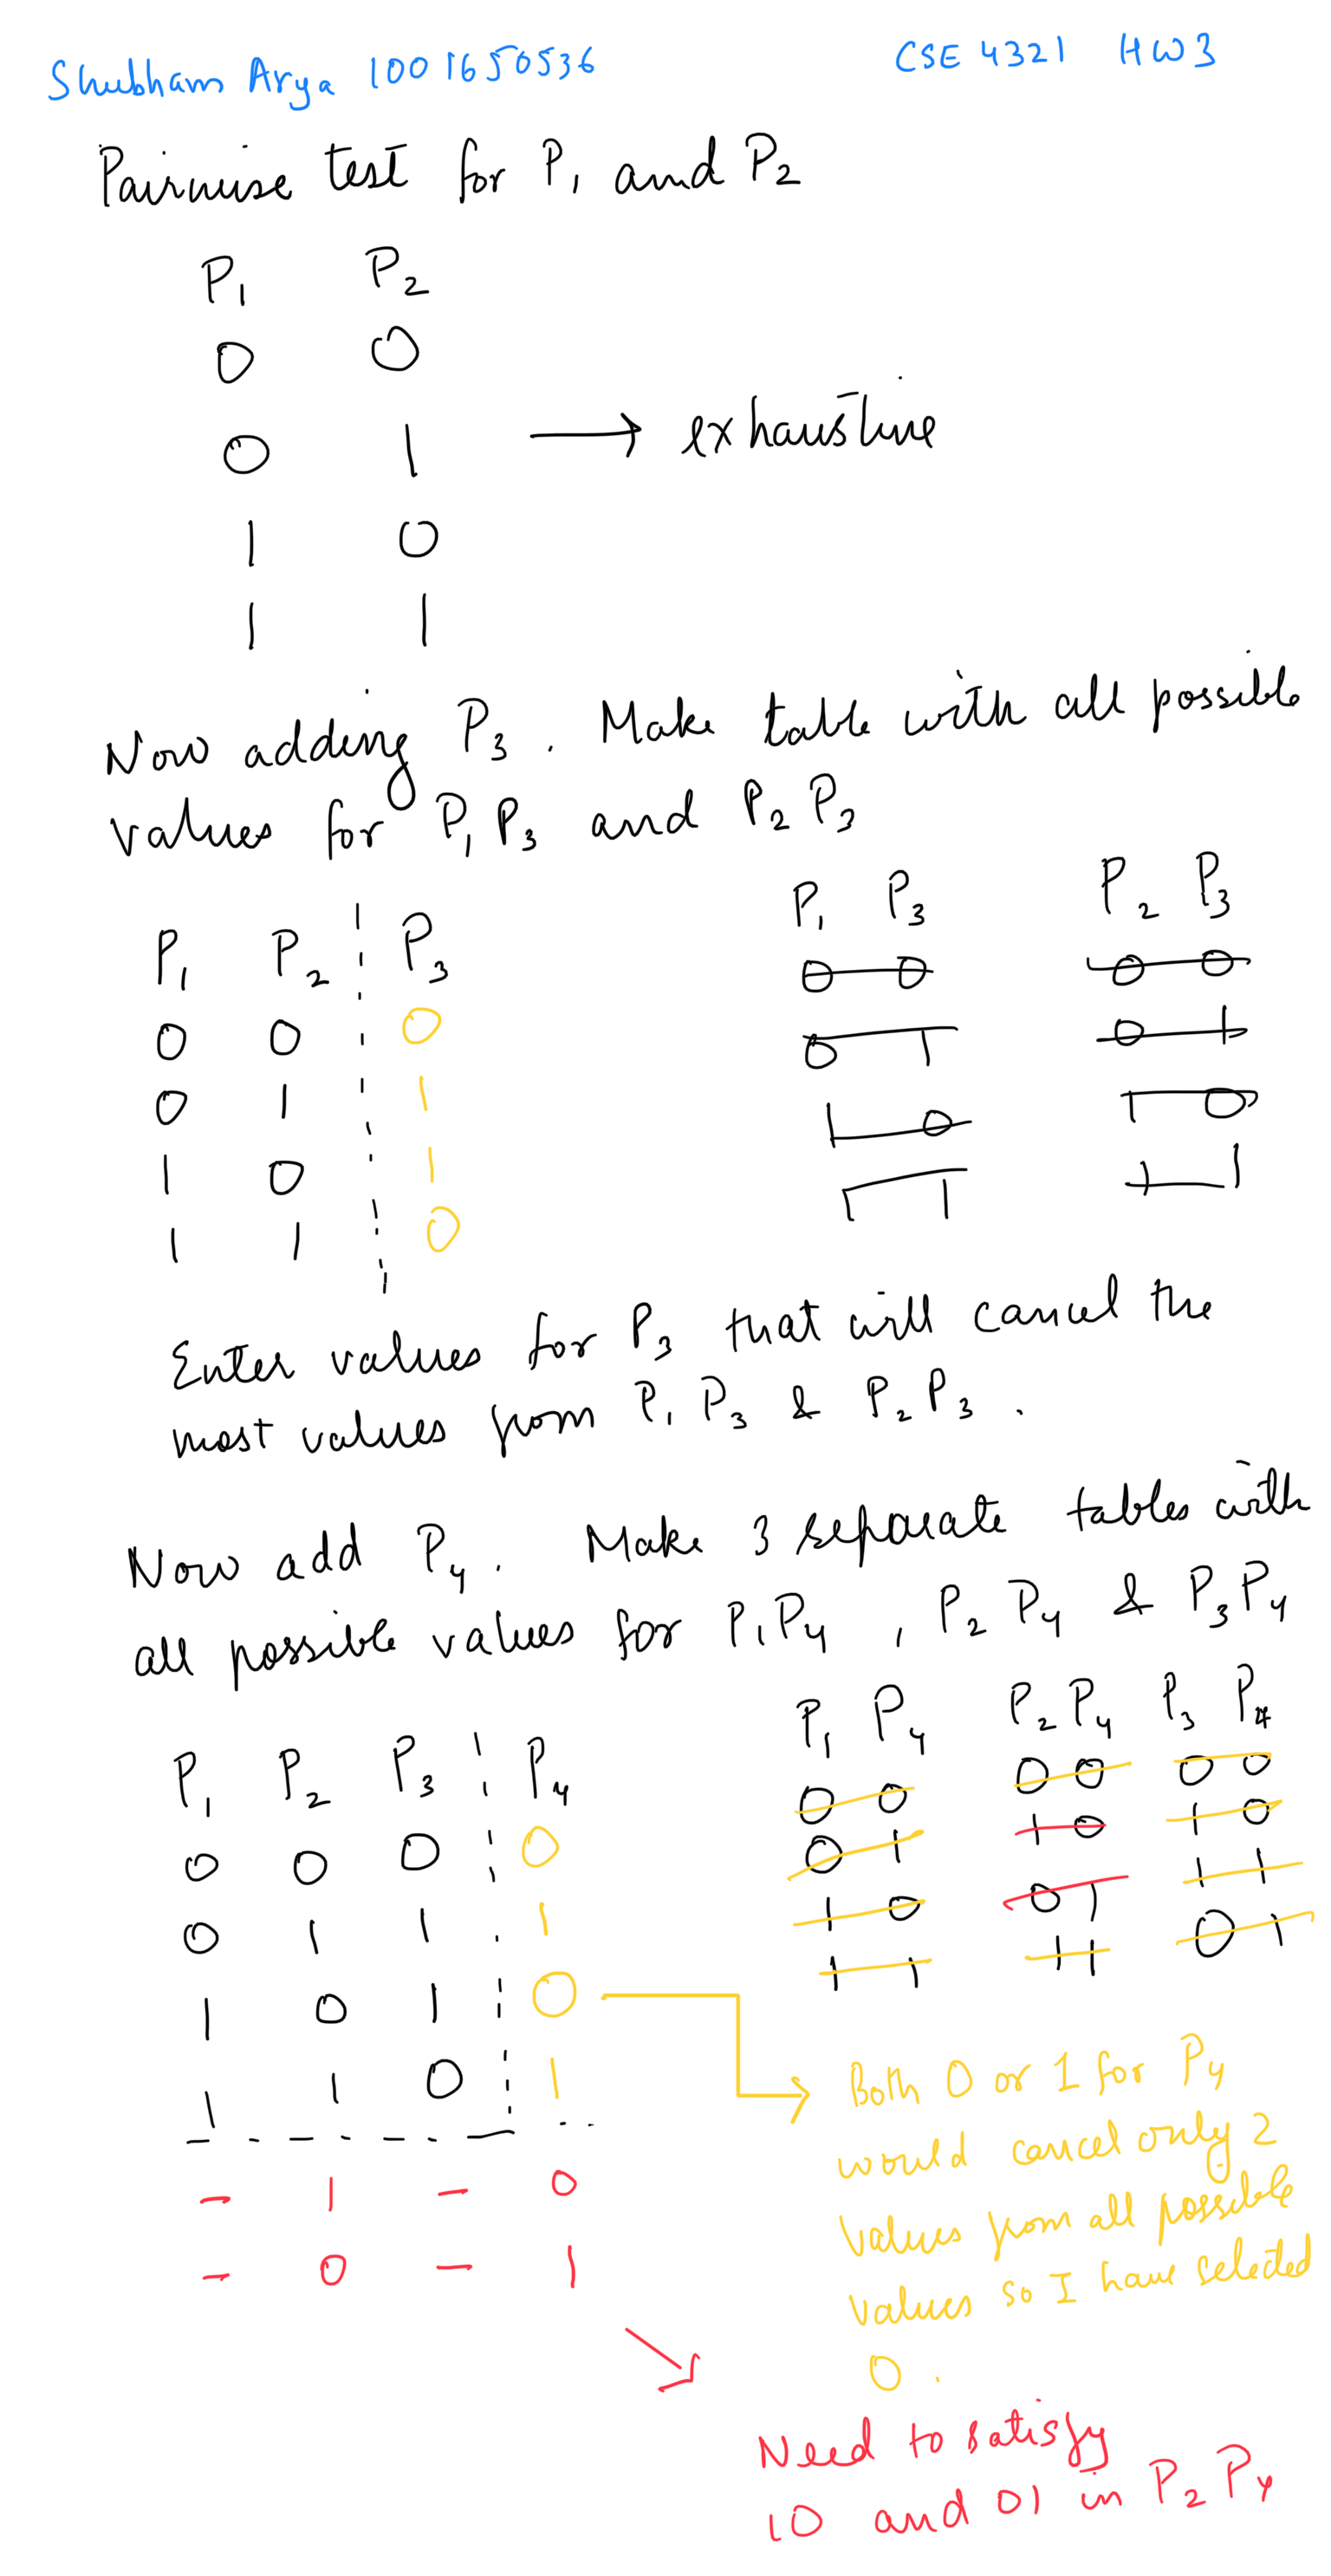 Shubham Arya 1001650536 CSE 4321 HW3
Pairwise test for P1 and P2
P1 P2
0 0
0 1 → exhaustive
1 0
1 1
Now adding P3. Make table with all possible
values for P1 P3 and P2 P3
P1 P2 P3 P1 P3 P2 P3
0 0 0 0 0 0 0
0 1 1 0 1 0 1
1 0 1 1 0 1 0
1 1 0 1 1 1 1
Enter values for P3 that will cancel the
most values from P1 P3 & P2 P3.
Now add P4. Make 3 separate tables with
all possible values for P1P4, P2 P4 & P3P4
P1 P2 P3 P4 P1 P4 P2 P4 P3 P4
0 0 0 0 0 0 0 0 0 0
0 1 1 1 0 1 1 0 1 0
1 0 1 0 1 0 0 1 1 1
1 1 0 1 1 1 1 1 0 1
- 1 - 0
- 0 - 1
Both 0 or 1 for P4
would cancel only 2
values from all possible
values so I have selected
0.
Need to satisfy
10 and 01 in P2 P4